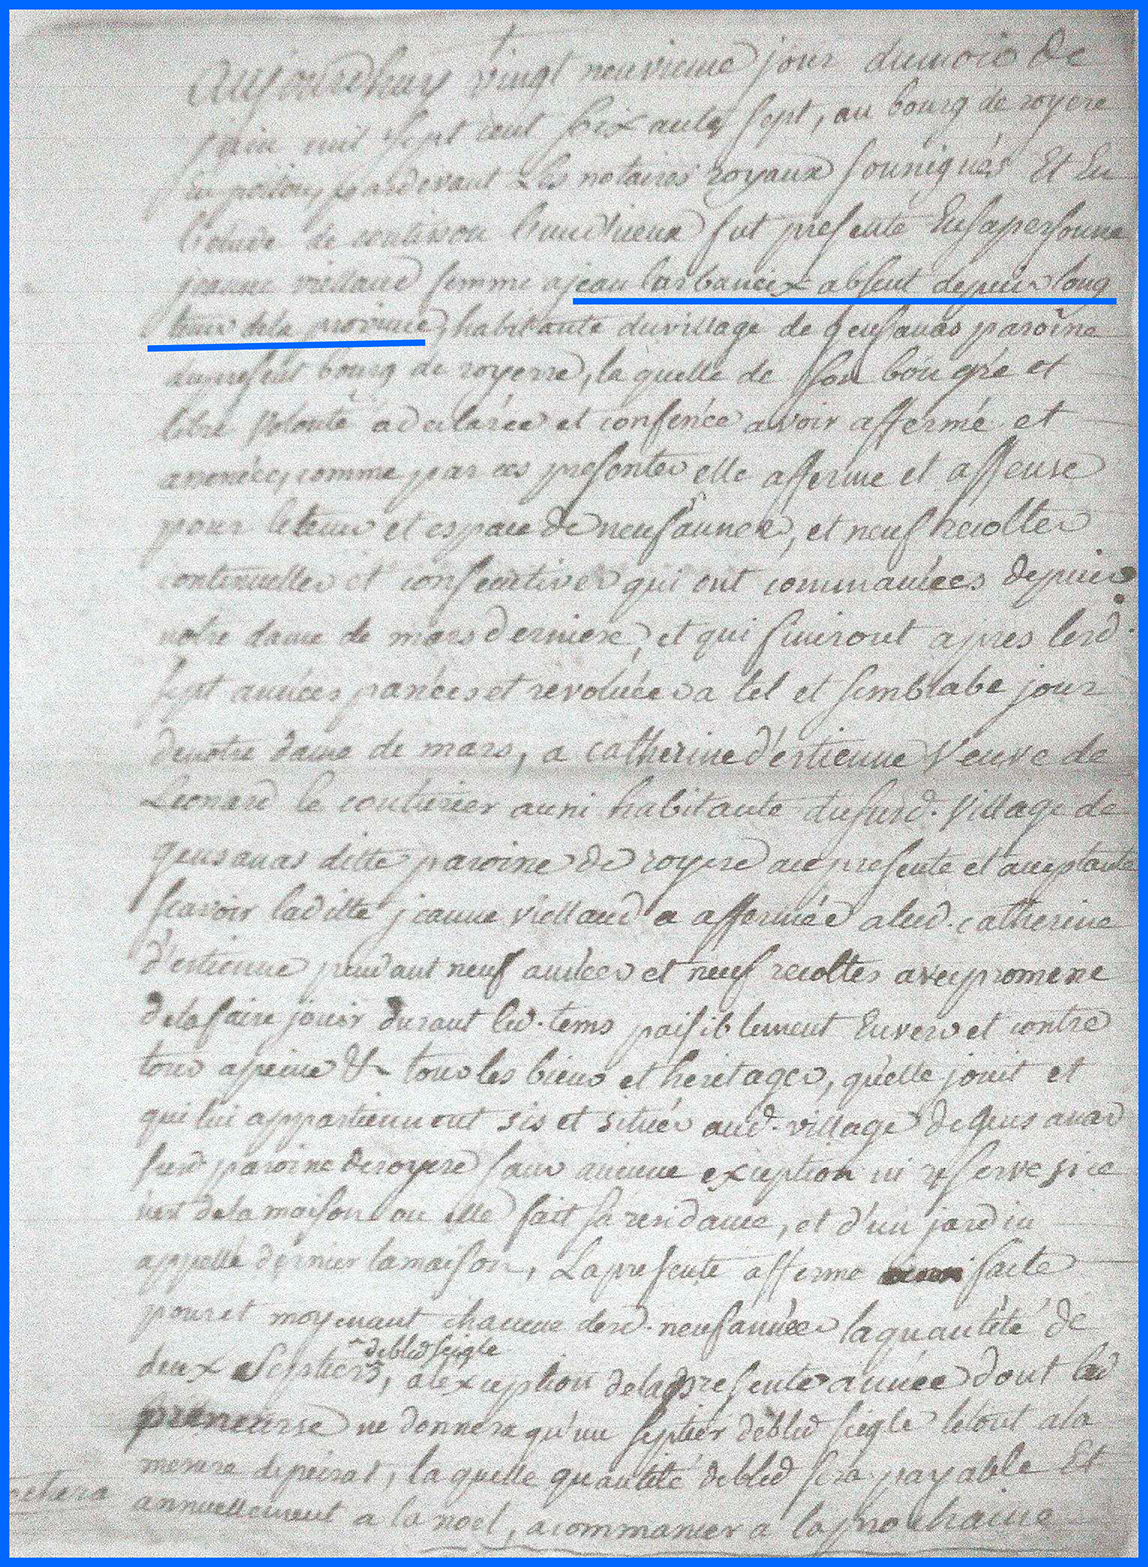 aujourdhuy vingt neuvieme jour du mois de
juin mil sept cent soix ante sept, au bourg de royere
En poitou, pardevant Les notaires royaux souniqués Et En
l'etude de coutison l'un d'iceux fut presente En sa personne
jeanne viellaud femme a jean larbaneix absent depuis long
tems de la province, habitante du village de gensanas paroine
du present bourg de royerre, la quelle de son bon gré et
libre volonté a declarée et confencé avoir affermé et
comme par ces presentes elle afferme et affense
pour le tems et espace de neuf années, et neuf recoltes
continuelles et consecutives qui ont commancées depuis
notre dame de mars derniere, et qui finiront apres lesd.
sept années panées et revoluées a tel et semblabe jour
de notre dame de mars, a catherine d'estienne Veuve de
Leonard le couturier auni habitante du susd. Village de
gensanas ditte paroine de royere acy presente et aceptante
scavoir laditte jeanne viellaud a affermée alad. catherine
d'estienne pendant neuf années et neuf recoltes avec promene
de la faire jouir durant led. tems paisiblement Envers et contre
tous a peine & tous les biens et heritages, qu'elle jouit et
qui lui appartiennent sis et situés aud. village de gens anas
susd. paroine de royere sans aucune exception ni reserve si ce
n'est de la maison ou elle fait sa residance, et d'un jardin
appellé dernier la maison, La presente afferme faite
pour et moyenant chacune desd. neuf années la quantité de
deux septiers, de bled seigle a l'exception de la presente année dont lad
preneurse ne donnera qu'un septier de bled seigle le tout a la
menure de peirat, la quelle quantité de bled sera payable Et
annuellement a la noel, a commancer a la prochaine